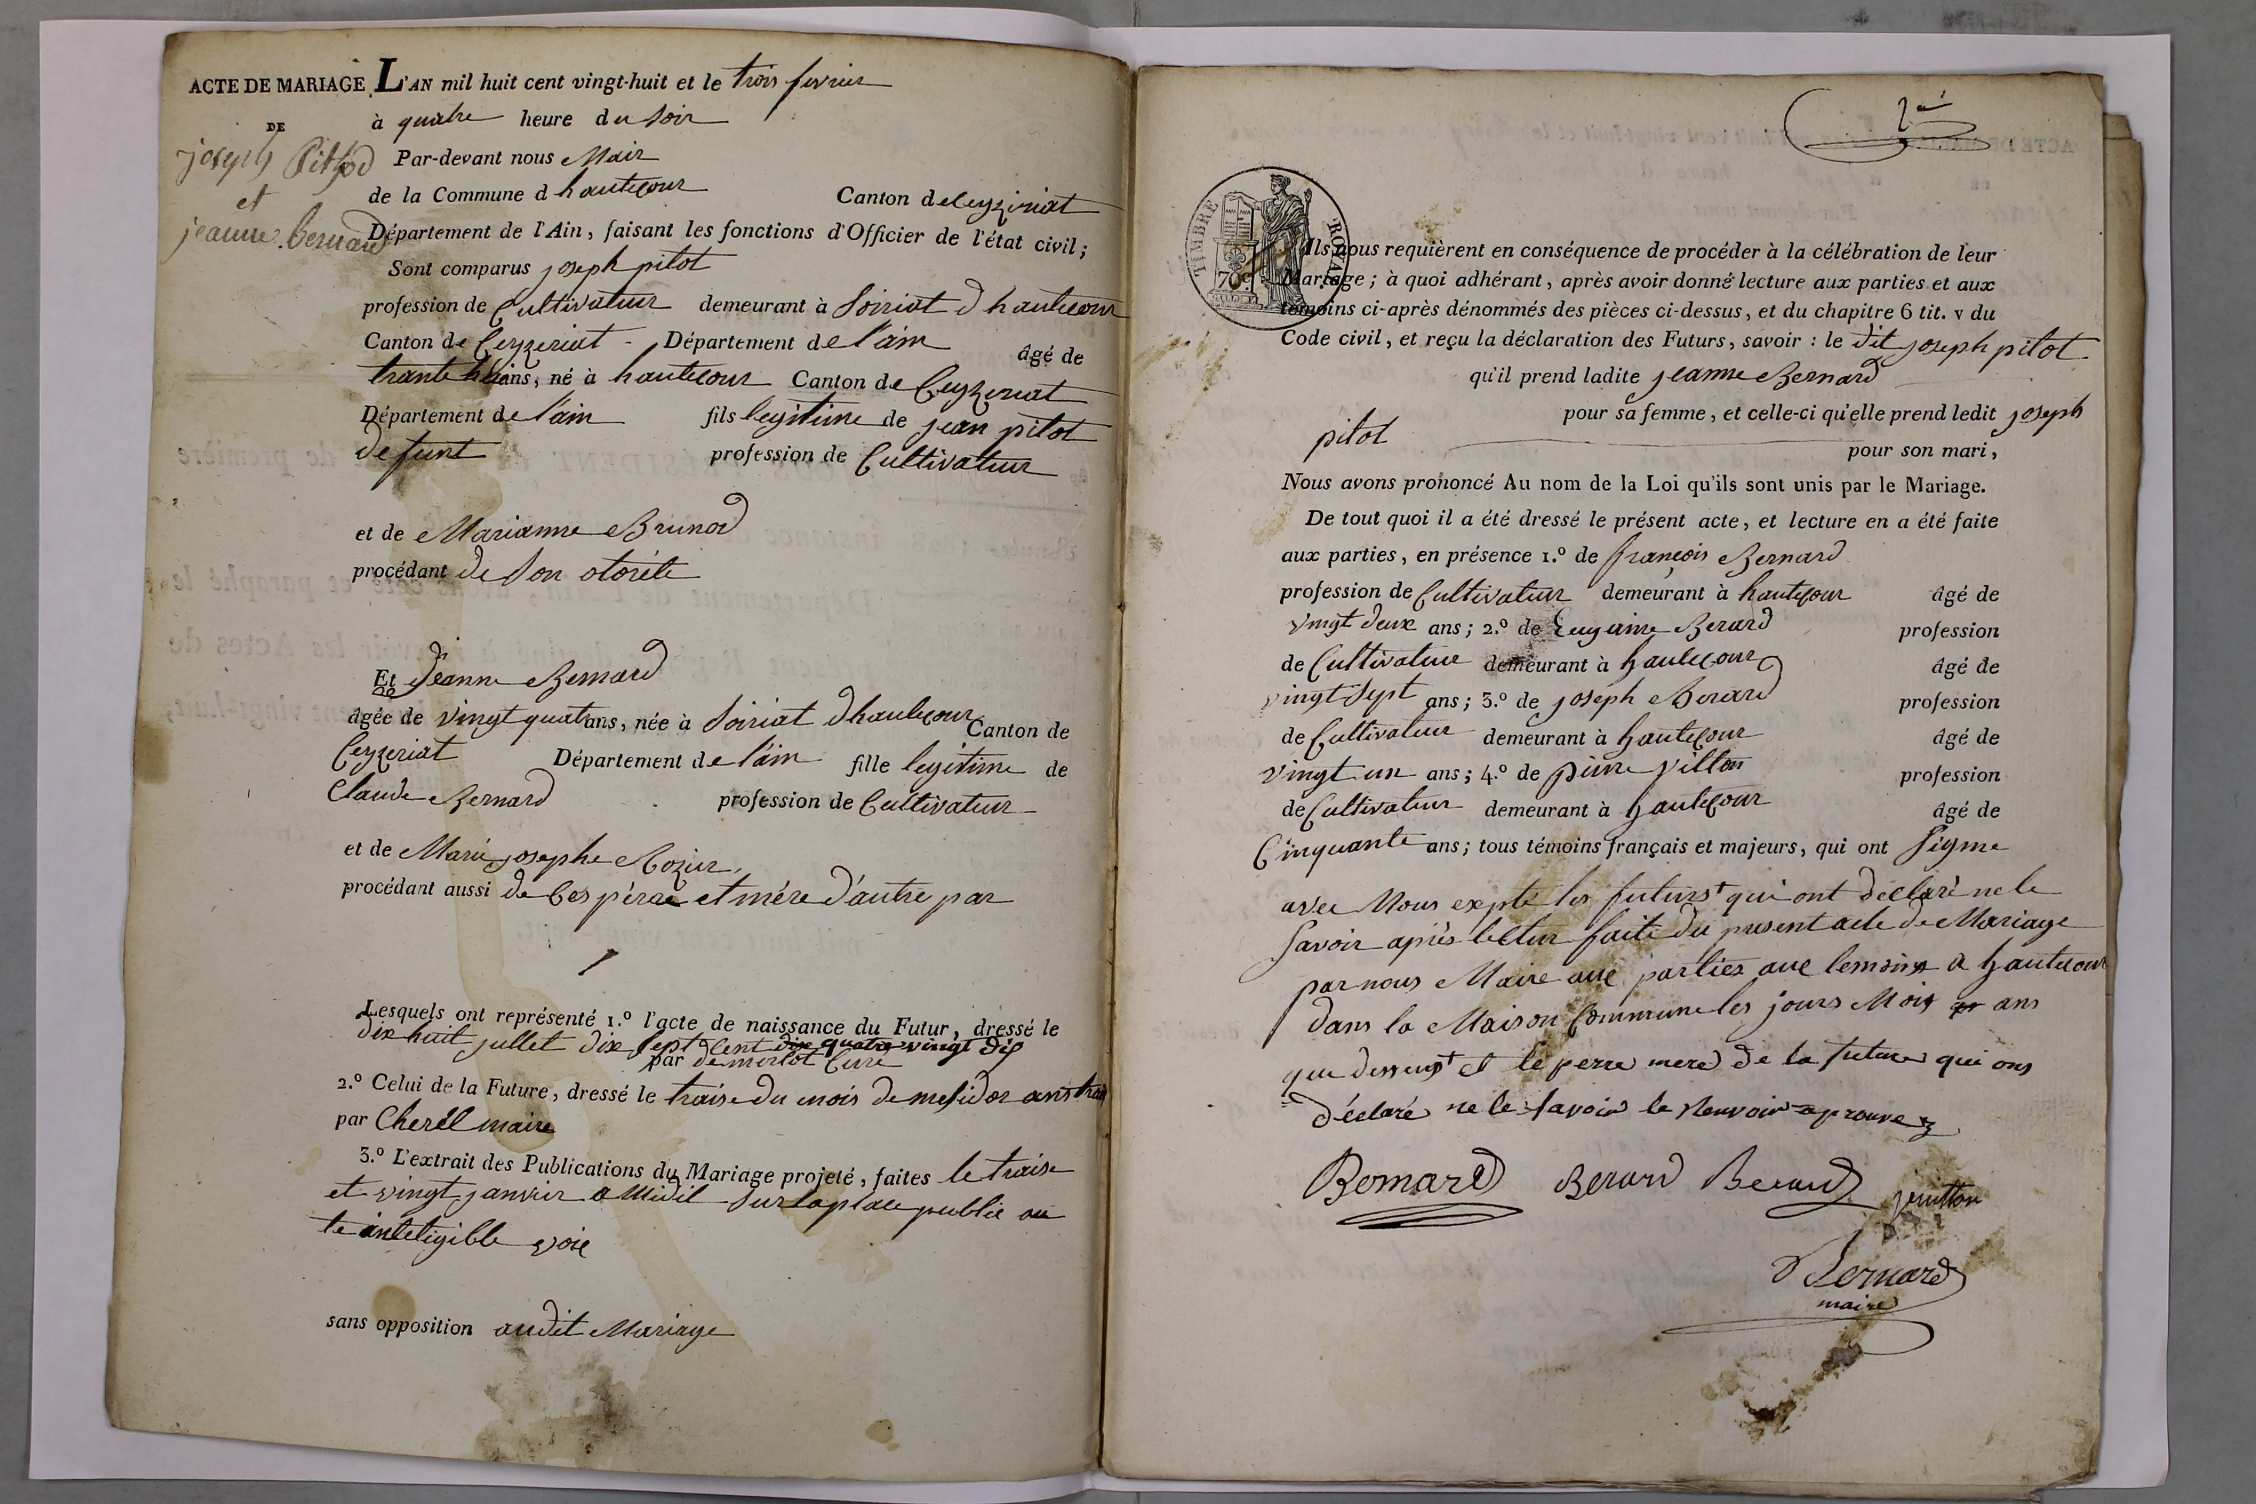 ACTE DE MARIAGE L'AN mil huit cent vingt-huit et le trois fevrier
DE
à quatre heure du soir
joseph Pithod
Par-devant nous Mair
et
de la Commune d hautecour Canton de Ceyzeriat
jeanne Bernard
Département de l'Ain, faisant les fonctions d'Officier de l'état civil;
Sont comparus joseph pitot
profession de Cultivateur demeurant à Soiriat d hautecour
Canton de Ceyzeriat - Département de l'ain âgé de
trante ans, né à hautecour Canton de Ceyzeriat
Département de l'ain fils legitime de jean pitot
defunt profession de Cultivateur
et de Marianne Brunod
procédant de Son otoréte
Et Jeanne Bernard
âgée de vingt quat ans, née à Soiriat d hautecour Canton de
Ceyzeriat Département de l'ain fille legitime de
Claude Bernard profession de Cultivateur
et de Marie josephe Rozier,
procédant aussi de Ces pérre et mére d'autre par
Lesquels ont représenté 1.º l'acte de naissance du Futur, dressé le
dix huit jullet dix sept cent dix quatre vingt dis
par demorlot Curé
2.º Celui de la Future, dressé le traise du mois de mesidor ans trois
par Cherél maire
3.º L'extrait des Publications du Mariage projeté, faites le traise
et vingt janvier a Midil sur la place public au
te inteligible voie
sans opposition audit Mariage
2me
TIMBRE ROYAL
70c.
Ils nous requièrent en conséquence de procéder à la célébration de leur
Mariage; à quoi adhérant, après avoir donné lecture aux parties et aux
témoins ci-après dénommés des pièces ci-dessus, et du chapitre 6 tit. v du
Code civil, et reçu la déclaration des Futurs, savoir : le dit joseph pitot
qu'il prend ladite jeanne Bernard
pour sa femme, et celle-ci qu'elle prend ledit joseph
pitot
pour son mari,
Nous avons prononcé Au nom de la Loi qu'ils sont unis par le Mariage.
De tout quoi il a été dressé le présent acte, et lecture en a été faite
aux parties, en présence 1.º de françois Bernard
profession de Cultivateur demeurant à hautecour âgé de
vingt deux ans; 2.º de Eugaine Berard profession
de Cultivateur demeurant à hautecour âgé de
vingt sept ans; 3.º de joseph Berard profession
de Cultivateur demeurant à hautecour âgé de
vingt un ans; 4.º de pierre villon profession
de Cultivateur demeurant à hautecour âgé de
Cinquante ans; tous témoins français et majeurs, qui ont signe
avec Nous expte les futurs + qui ont déclaré ne le
savoir après lectur faite du present acte de Mariage
par nous Maire aux parties aux temoins a hautecour
dans la Maison Commune les jours Mois et ans
que dessus + et le perre mere de la future qui ons
déclaré ne le savoir le renvoir aprouvez
Bernard Berard Berard
Bernard
maire